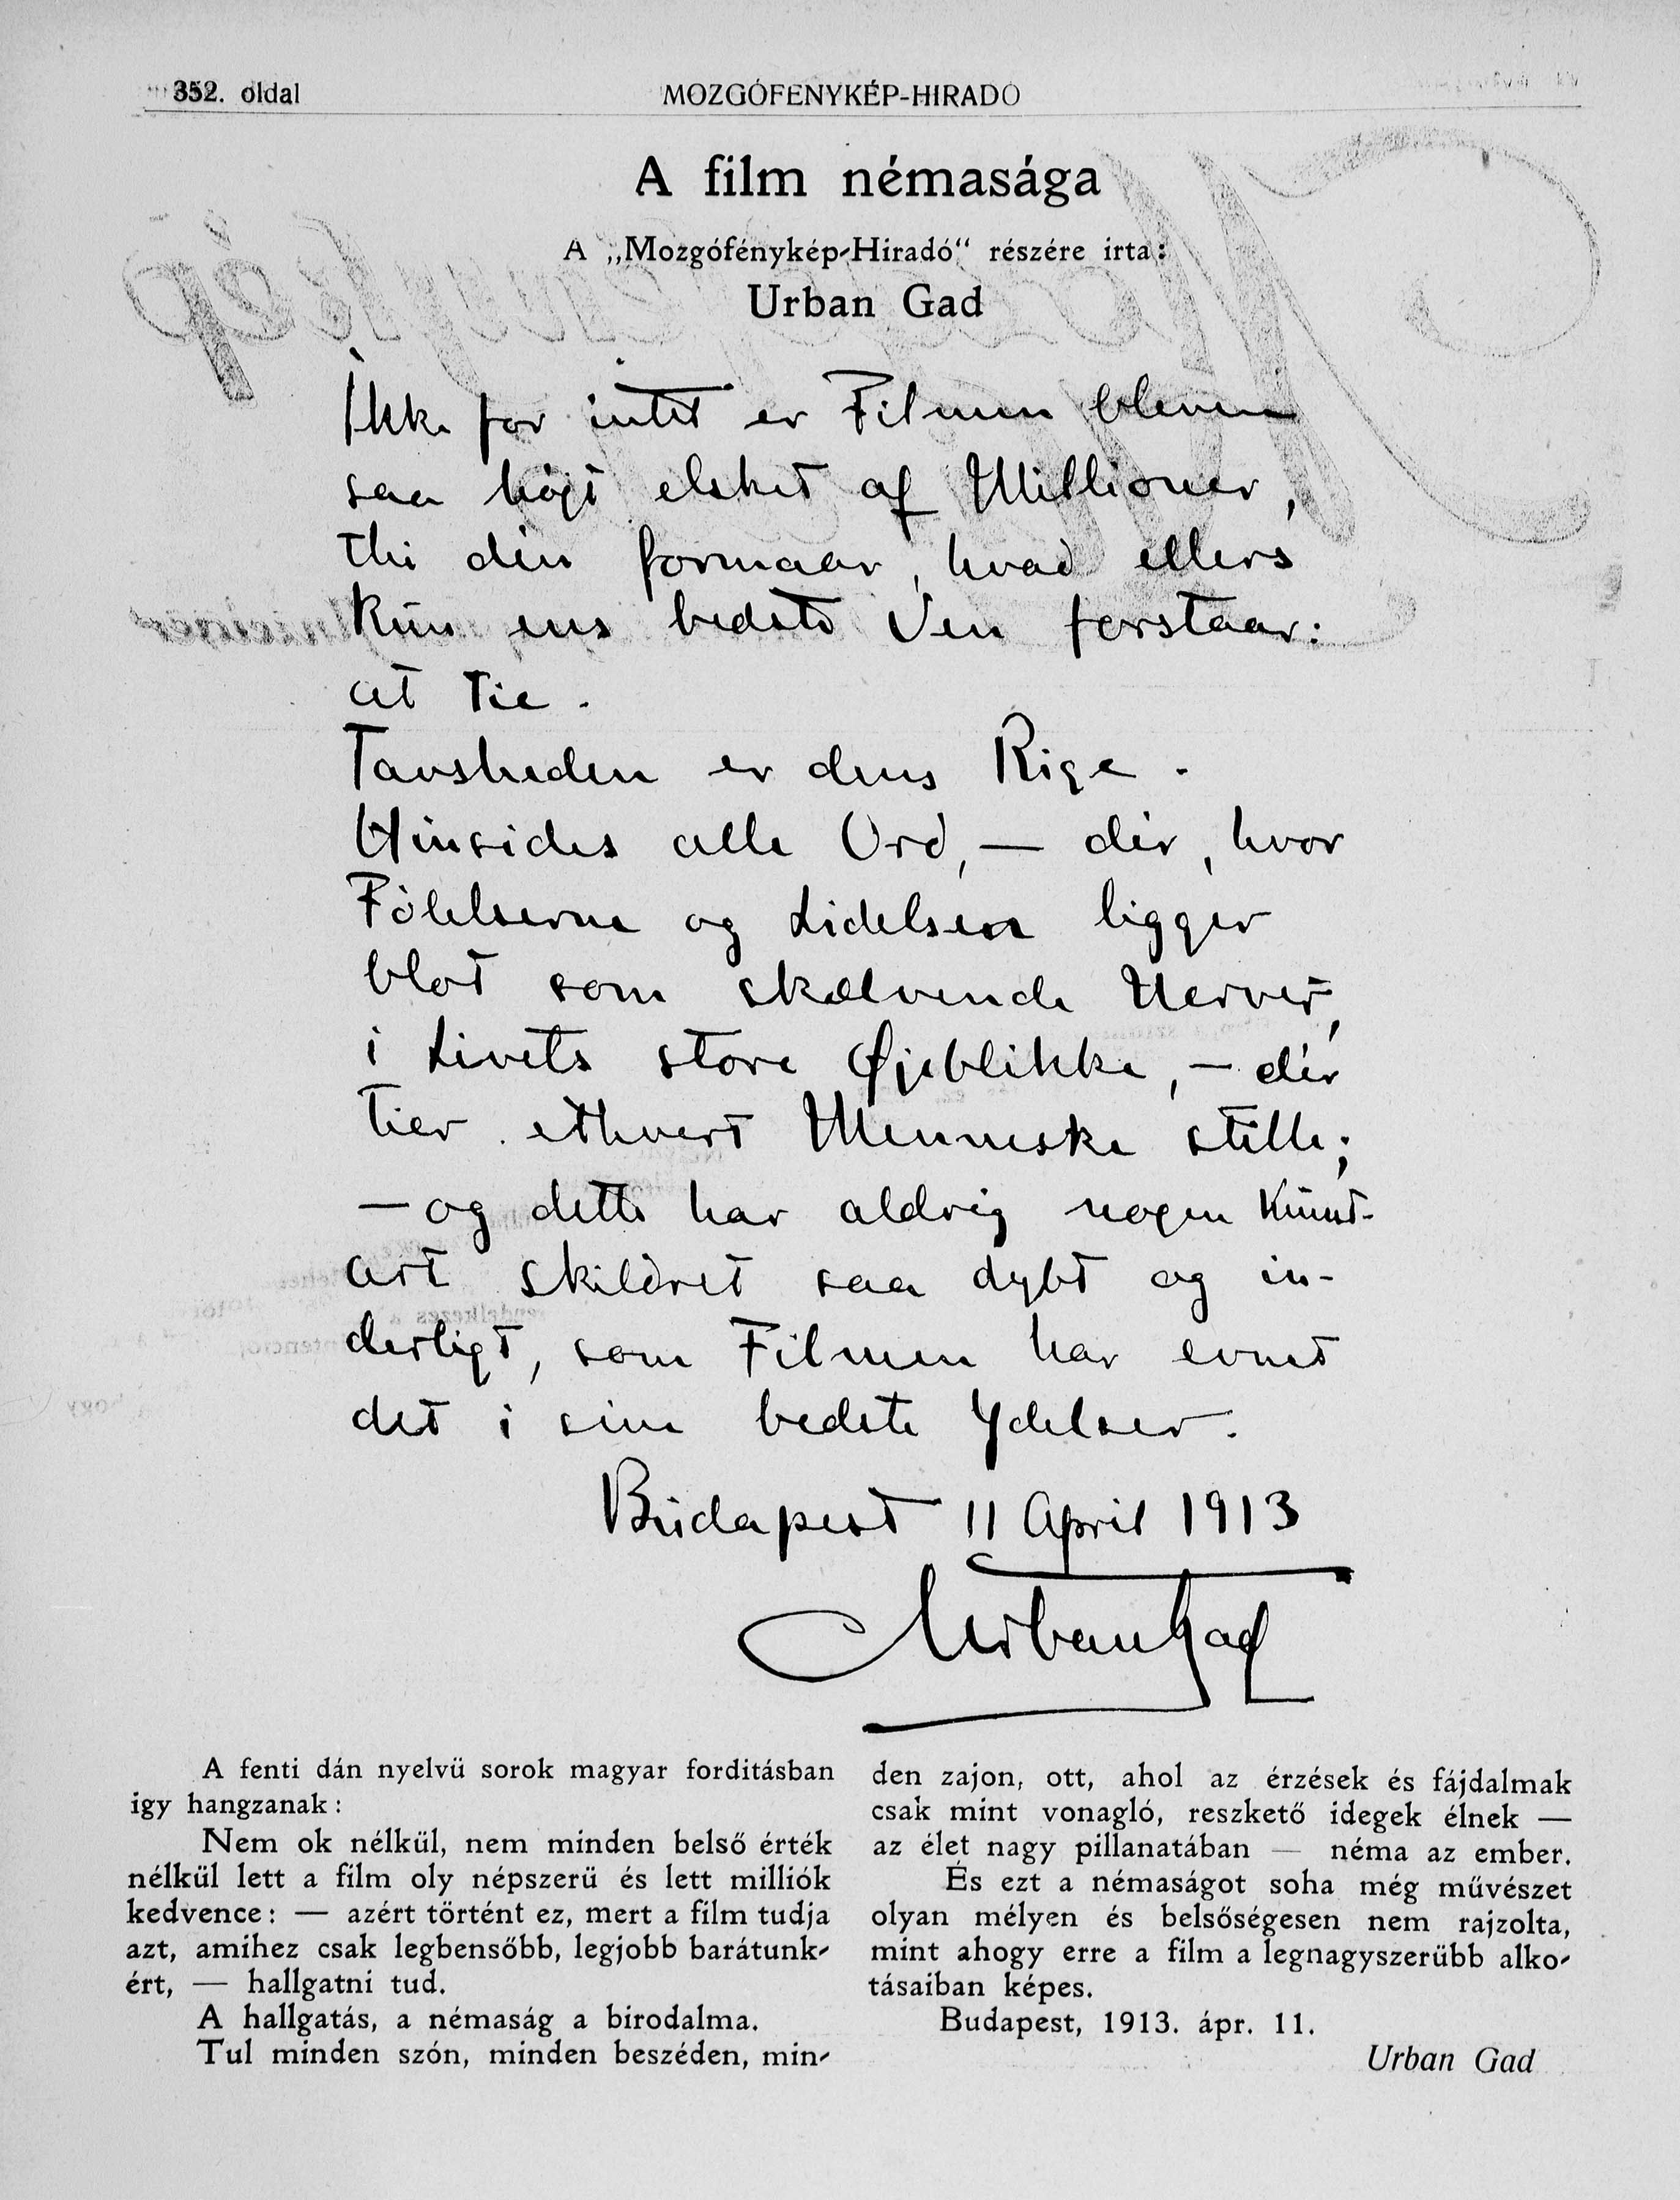 352. oldal
MOZGÓFÉNYKÉP-HIRADÓ
A film némasága
A „Mozgófénykép-Hiradó“ részére irta:
Urban Gad
Ikke for intet er Filmen bleven
saa højt elsket af Millioner,
thi den formaar, hvad ellers
kun ens bedste Ven forstaar:
at tie.
Tavsheden er dens Rige.
Hinsides alle Ord, — dér, hvor
Følelserne og Lidelsen ligger
blot som skælvende Nerver,
i Livets store Øjeblikke, — dér
tier ethvert Menneske stille;
— og dette har aldrig nogen Kunst-
art skildret saa dybt og in-
derligt, som Filmen har evnet
det i sine bedste Ydelser.
Budapest 11 April 1913
Urban Gad
A fenti dán nyelvü sorok magyar forditásban
igy hangzanak:
Nem ok nélkül, nem minden belső érték
nélkül lett a film oly népszerü és lett milliók
kedvence: — azért történt ez, mert a film tudja
azt, amihez csak legbensőbb, legjobb barátunk-
ért, — hallgatni tud.
A hallgatás, a némaság a birodalma.
Tul minden szón, minden beszéden, min-
den zajon, ott, ahol az érzések és fájdalmak
csak mint vonagló, reszkető idegek élnek —
az élet nagy pillanatában — néma az ember.
És ezt a némaságot soha még művészet
olyan mélyen és belsőségesen nem rajzolta,
mint ahogy erre a film a legnagyszerübb alko-
tásaiban képes.
Budapest, 1913. ápr. 11.
Urban Gad